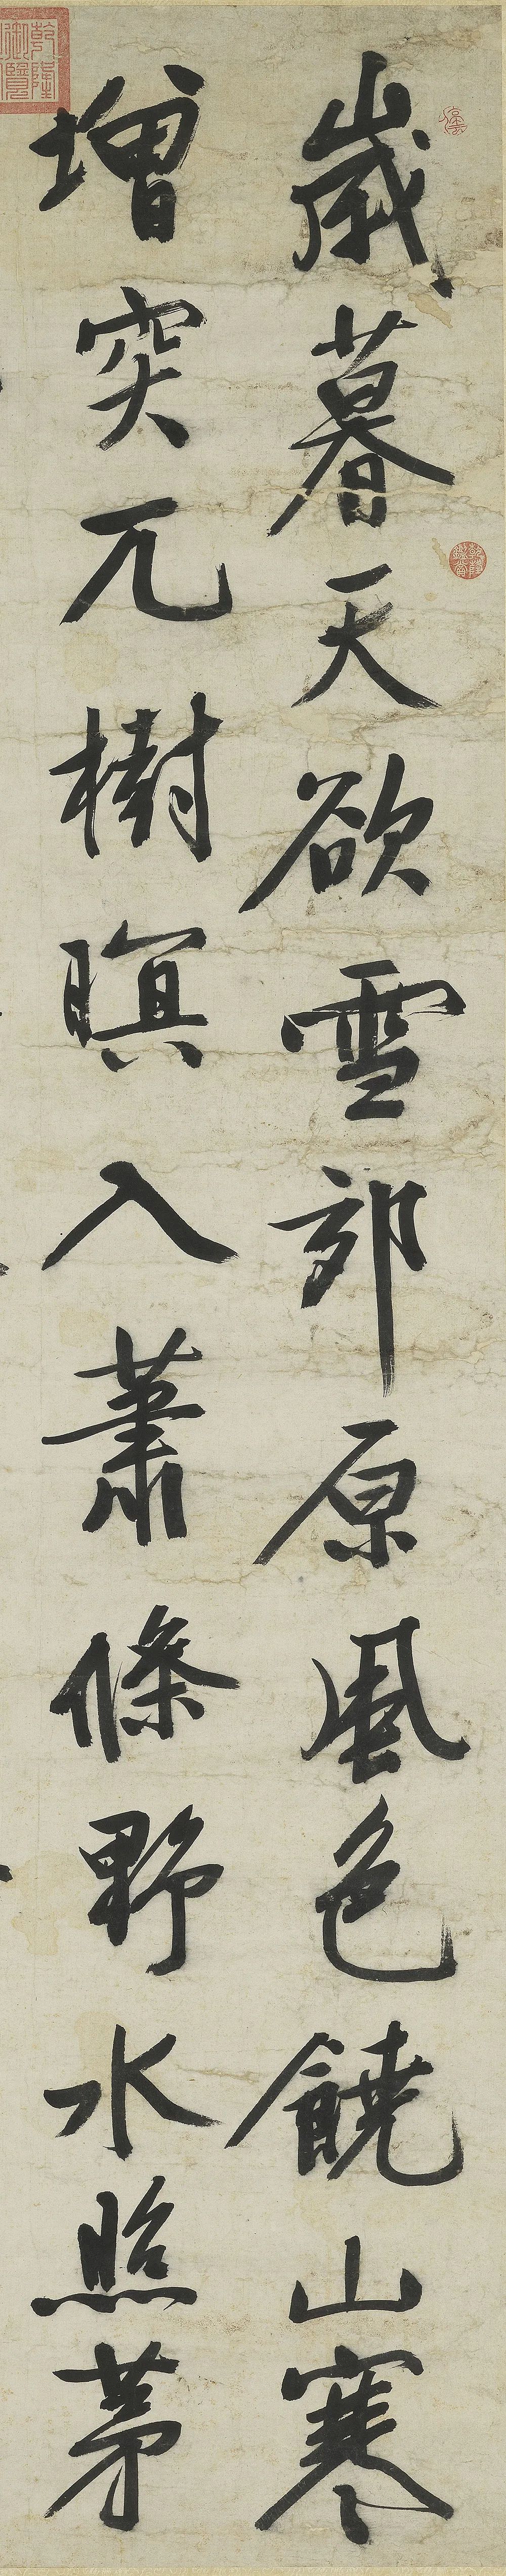 歲暮天欲雪郊原風色饒山寒
增突兀樹暝入蕭條野水照茅
乾隆御覽
乾隆鑑賞